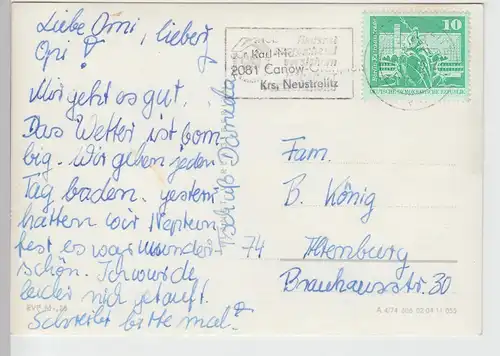 Liebe Omi, lieber
Opi!
Mir geht es gut.
Das Wetter ist bom-
big. Wir gehen jeden
Tag baden. gestern
hatten wir Neptun
fest es war wunder-
schön. Ich wurde
leider nich getauft.
Schreibt bitte mal!
Tschüß
2081 Canow
Krs. Neustrelitz
10
DEUTSCHE DEMOKRATISCHE REPUBLIK
Fam.
B. König
74 Altenburg
Brauhausstr. 30